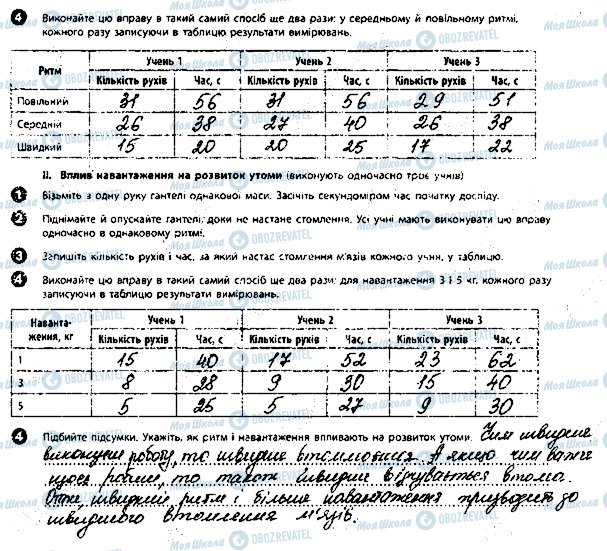 4 Виконайте цю вправу в такий самий спосіб ще два рази: у середньому й повільному ритмі,
кожного разу записуючи в таблицю результати вимірювань.
Ритм Учень 1 Учень 2 Учень 3
Кількість рухів Час, с Кількість рухів Час, с Кількість рухів Час, с
Повільний 31 56 31 56 29 51
Середній 26 38 27 40 26 38
Швидкий 15 20 20 25 17 22
II. Вплив навантаження на розвиток утоми (виконують одночасно троє учнів)
1 Візьміть в одну руку гантелі однакової маси. Засічіть секундоміром час початку досліду.
2 Піднімайте й опускайте гантелі, доки не настане стомлення. Усі учні мають виконувати цю вправу
одночасно в однаковому ритмі.
3 Запишіть кількість рухів і час, за який настає стомлення м'язів кожного учня, у таблицю.
4 Виконайте цю вправу в такий самий спосіб ще два рази: для навантаження 3 і 5 кг, кожного разу
записуючи в таблицю результати вимірювань.
Наванта-
ження, кг Учень 1 Учень 2 Учень 3
Кількість рухів Час, с Кількість рухів Час, с Кількість рухів Час, с
1 15 40 17 52 23 62
3 8 28 9 30 15 40
5 5 25 5 27 9 30
4 Підбийте підсумки. Укажіть, як ритм і навантаження впливають на розвиток утоми. Чим швидше
виконуєш роботу, то швидше втомлюєшся. А якщо чим важче
щось робиш, то також швидше відчувається втома.
Отже, швидший ритм і більше навантаження призводить до
швидшого втомлення м'язів.
Моя Школа OBOZREVATEL